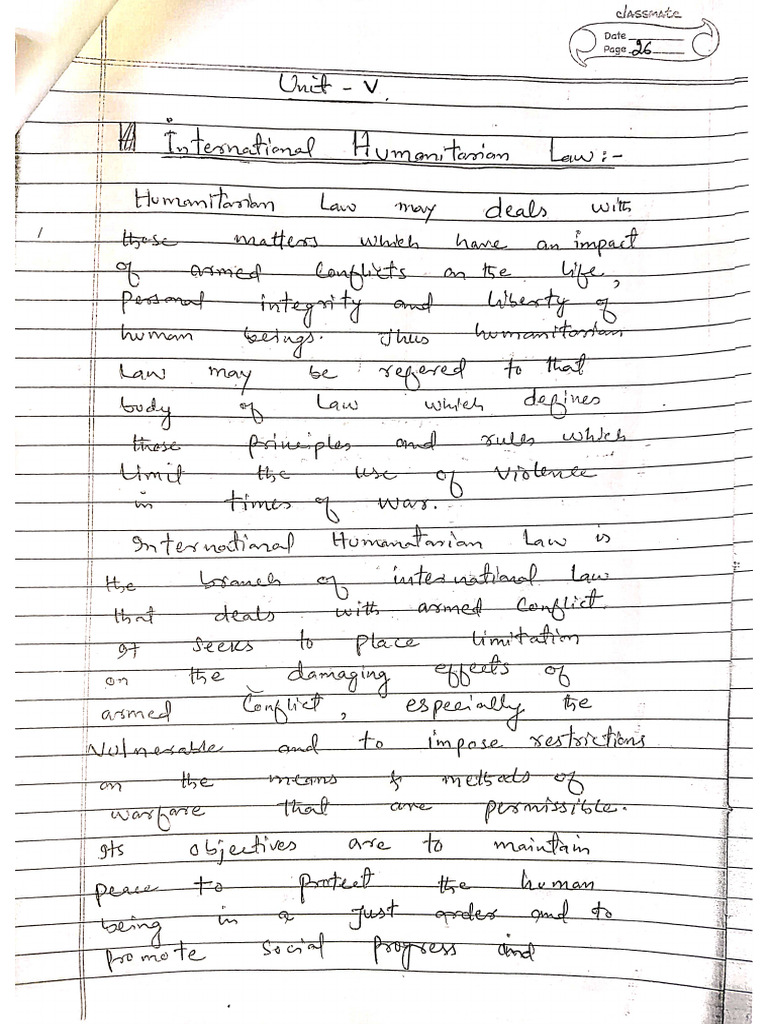 classmate
Date
Page 26
Unit - V.
International Humanitarian Law:-
Humanitarian Law may deals with
those matters which have an impact
of armed conflicts on the life,
personal integrity and liberty of
human beings. Thus humanitarian
Law may be refered to that
body of Law which defines
those principles and rules which
Limit the use of violence
in times of war.
International Humanatarian Law is
the branch of international Law
that deals with armed conflict.
It seeks to place limitation
on the damaging effects of
armed Conflict, especially the
Vulnerable and to impose restrictions
on the means & methods of
warfare that are permissible.
Its objectives are to maintain
peace to protect the human
being in a just order and to
promote social progress and